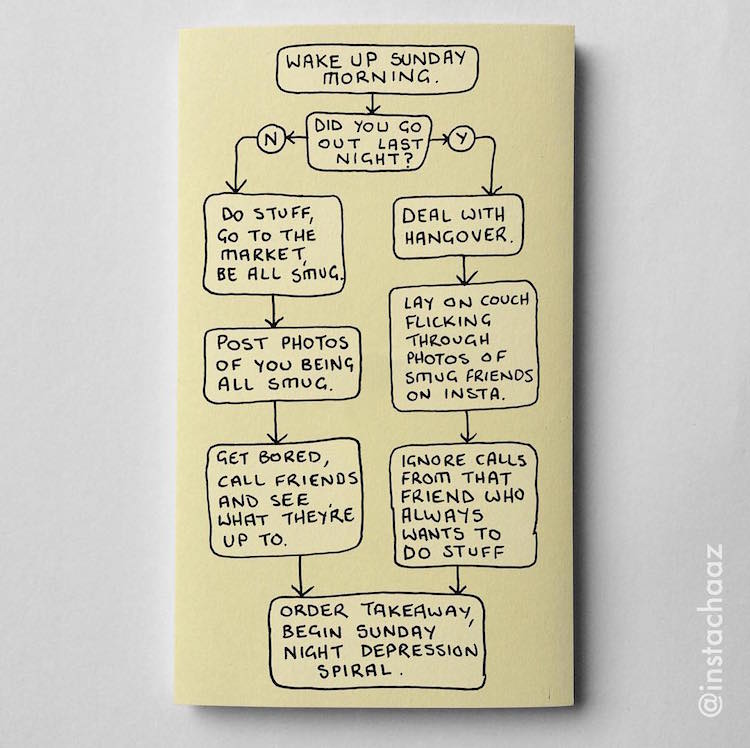 WAKE UP SUNDAY
MORNING.
DID YOU GO
OUT LAST
NIGHT?
N
Y
DO STUFF,
GO TO THE
MARKET,
BE ALL SMUG.
POST PHOTOS
OF YOU BEING
ALL SMUG.
GET BORED,
CALL FRIENDS
AND SEE
WHAT THEY'RE
UP TO.
DEAL WITH
HANGOVER.
LAY ON COUCH
FLICKING
THROUGH
PHOTOS OF
SMUG FRIENDS
ON INSTA.
IGNORE CALLS
FROM THAT
FRIEND WHO
ALWAYS
WANTS TO
DO STUFF
ORDER TAKEAWAY,
BEGIN SUNDAY
NIGHT DEPRESSION
SPIRAL.
@instachaaz